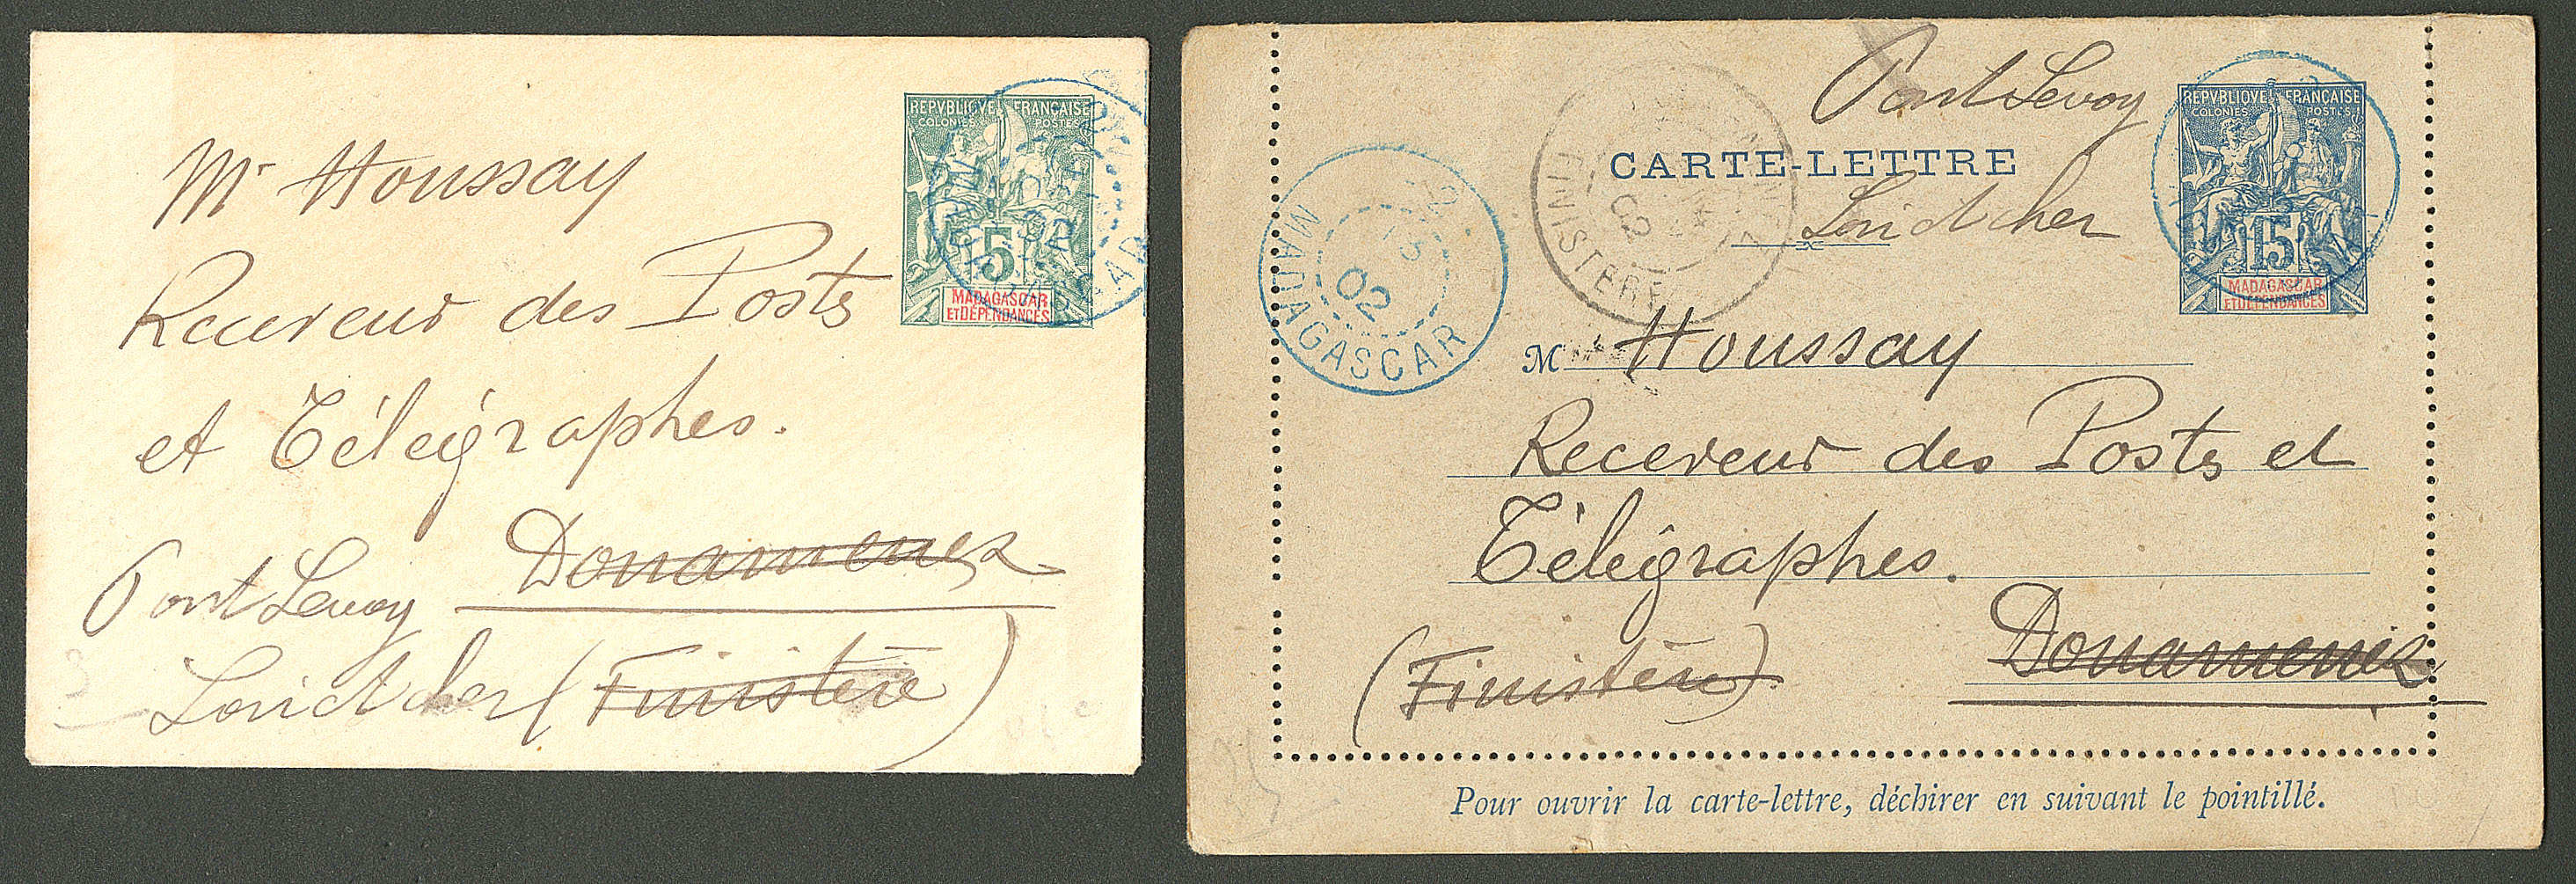 REPVBLIQVE FRANÇAISE
COLONIES POSTES
5
MADAGASCAR
ET DÉPENDANCES
02
Mr Houssay
Receveur des Postes
et Télégraphes.
Douarnenez
Pont Levoy
Loir et cher (Finistère)
Pont Levoy
CARTE-LETTRE
Loir et cher
REPVBLIQVE FRANÇAISE
COLONIES POSTES
15
MADAGASCAR
ET DÉPENDANCES
02
MADAGASCAR
02
FINISTERE
M Houssay
Receveur des Postes et
Télégraphes.
Douarnenez
(Finistère)
Pour ouvrir la carte-lettre, déchirer en suivant le pointillé.